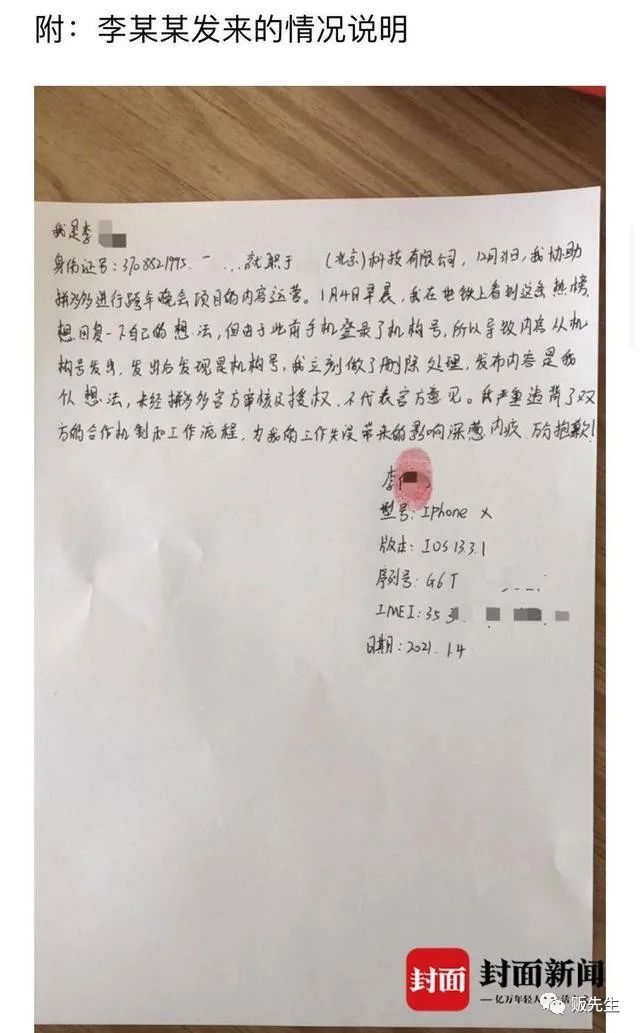 附：李某某发来的情况说明
我是李
身份证号：3708821995. 就职于 (北京)科技有限公司，12月31日，我协助
拼多多进行跨年晚会项目的内容运营。1月4日早晨，我在地铁上看到这条热榜
想回复一下自己的想法，但由于此前手机登录了机构号，所以导致内容从机
构号发出，发出后发现是机构号，我立刻做了删除处理，发布内容是我
个人想法，未经拼多多官方审核及授权，不代表官方意见。我严重违背了双
方的合作机制和工作流程，为我的工作失误带来的影响深感内疚，万分抱歉！
李
型号：Iphone X
版本：IOS 13.3.1
序列号：G6T
IMEI：35
日期：2021.1.4
封面 封面新闻
亿万年轻人
贩先生